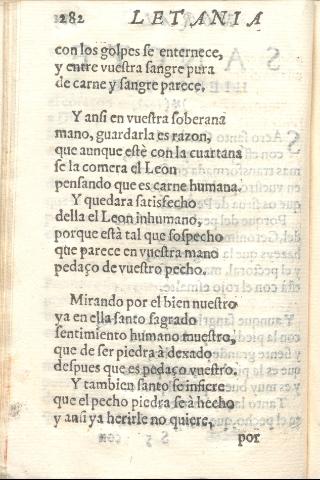 1282 LETANIA
con los golpes se enternece,
y entre vuestra sangre pura
de carne y sangre parece.
Y ansi en vuestra soberana
mano, guardarla es razon,
que aunque estè con la cuartana
se la comera el Leon
pensando que es carne humana.
Y quedara satisfecho
della el Leon inhumano,
porque està tal que sospecho
que parece en vuestra mano
pedaço de vuestro pecho.
Mirando por el bien nuestro
ya en ella santo sagrado
sentimiento humano muestro,
que de ser piedra à dexado
despues que es pedaço vuestro.
Y tambien santo se infiere
que el pecho piedra se à hecho
y ansi ya herirle no quiere,
por